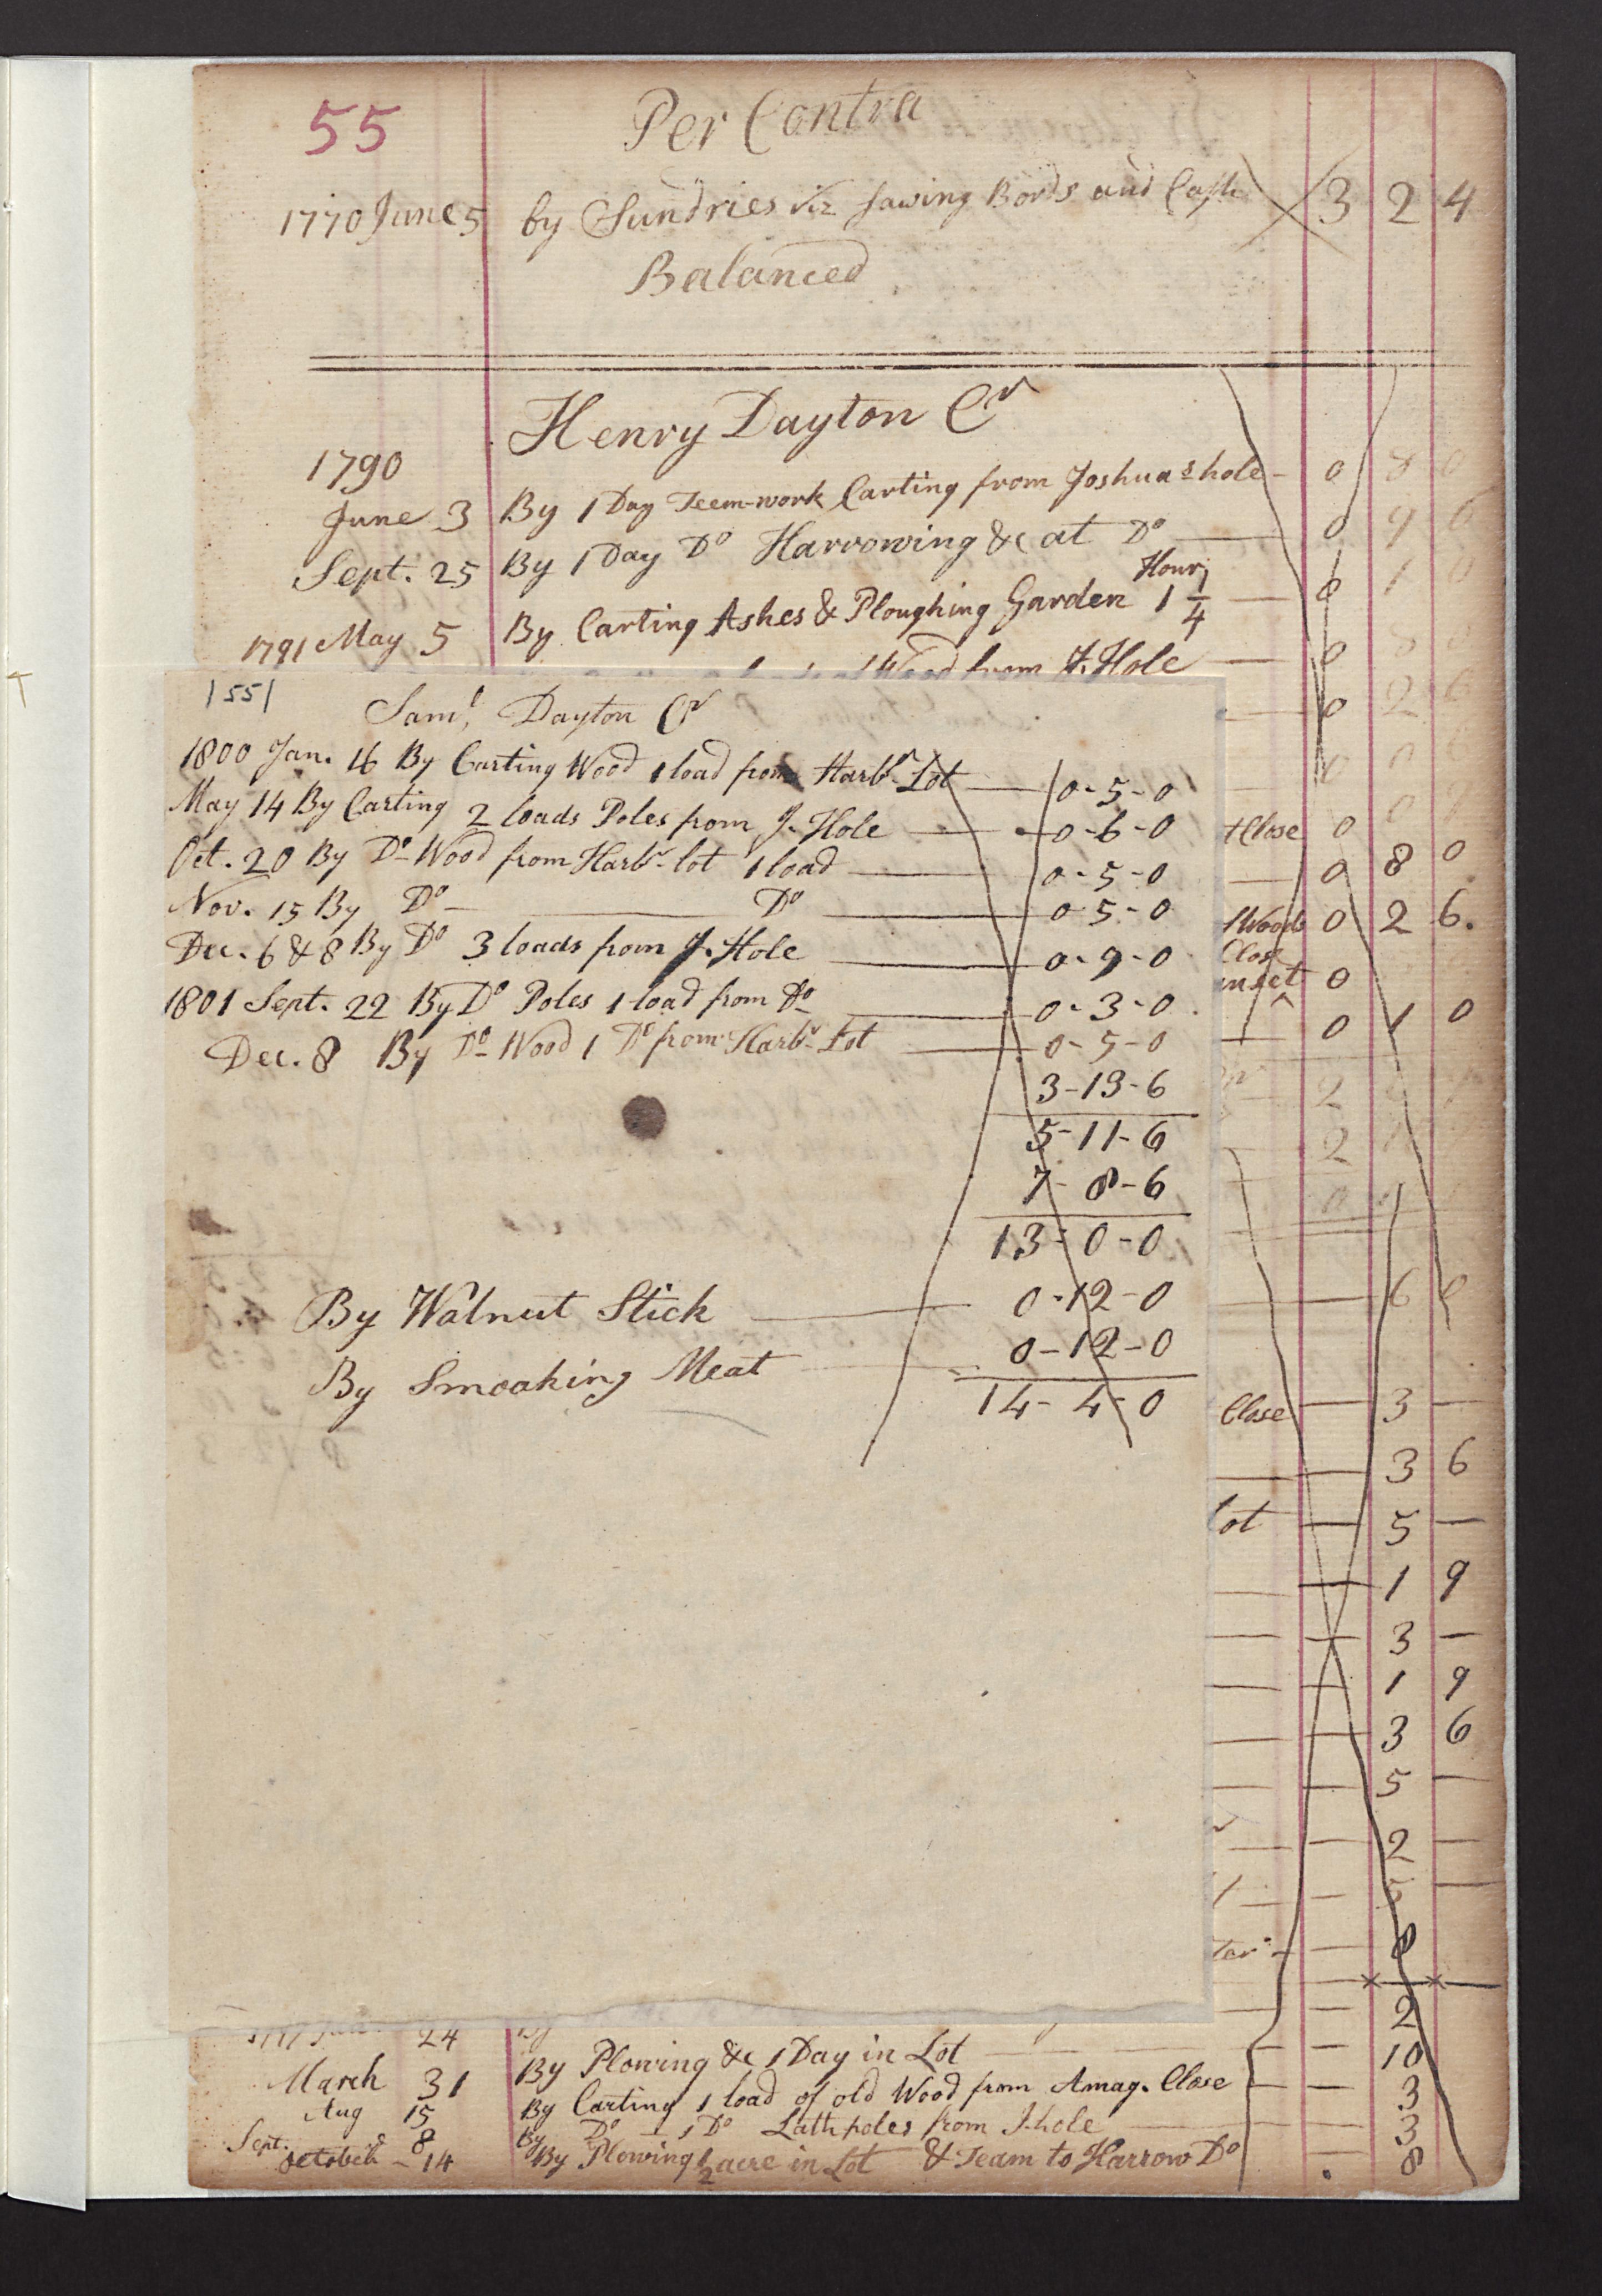 55
Per Contra
1770 June 5 by Sundries viz sawing Bords and Cash 3 2 4
Balanced
Henry Dayton Cr
1790
June 3 By 1 Day Teem-work Carting from Joshuas hole - 0 8 0
Sept. 25 By 1 Day Do Harrowing &c at Do 0 9 0
1791 May 5 By Carting Ashes & Ploughing Garden 1 1/4 Hour 0 1 0
Wood from J. Hole 0
0 2 6
0
Close 0
0 8 0
Woods 0 2 6.
Close
0
0 1 0
2
2
0
6
Close 3 —
3 6
Lot 5 —
1 9
3 —
1 9
3 6
5 —
2 —
5 —
8
2
|55|
Saml, Dayton Cr
1800 Jan. 16 By Carting Wood 1 load from Harbr Lot 0-5-0
May 14 By Carting 2 loads Poles from J. Hole 0-6-0
Oct. 20 By Do Wood from Harbr lot 1 load 0-5-0
Nov. 15 By Do Do 0-5-0
Dec. 6 & 8 By Do 3 loads from J. Hole 0-9-0
1801 Sept. 22 By Do Poles 1 load from Do 0-3-0
Dec. 8 By Do Wood 1 Do from Harbr Lot 0-5-0
3-13-6
5-11-6
7-8-6
13-0-0
By Walnut Stick 0-12-0
By Smoaking Meat 0-12-0
14-4-0
24 By
March 31 By Plowing &c 1 Day in Lot 10
Aug 15 By Carting 1 load of old Wood from Amag. Close 3
Sept. 8 By Do 1 Do Lathpoles from J-hole 3
October - 14 By Plowing 1/2 acre in Lot & Team to Harrow Do 8